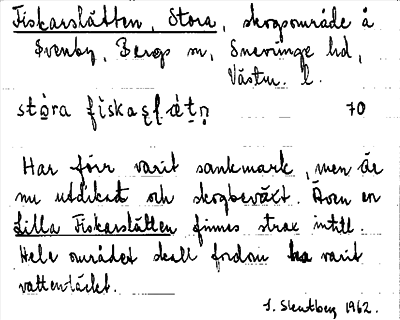 Fiskarslåtten, Stora, skogsområde å
Svenby, Bergs sn, Snevringe hd,
Västm. l.
70
Har förr varit sankmark, men är
nu utdikad och skogbeväxt. Även en
Lilla Fiskarslåtten finnes strax intill.
Hela området skall fordom ha varit
vattentäckt.
1962.